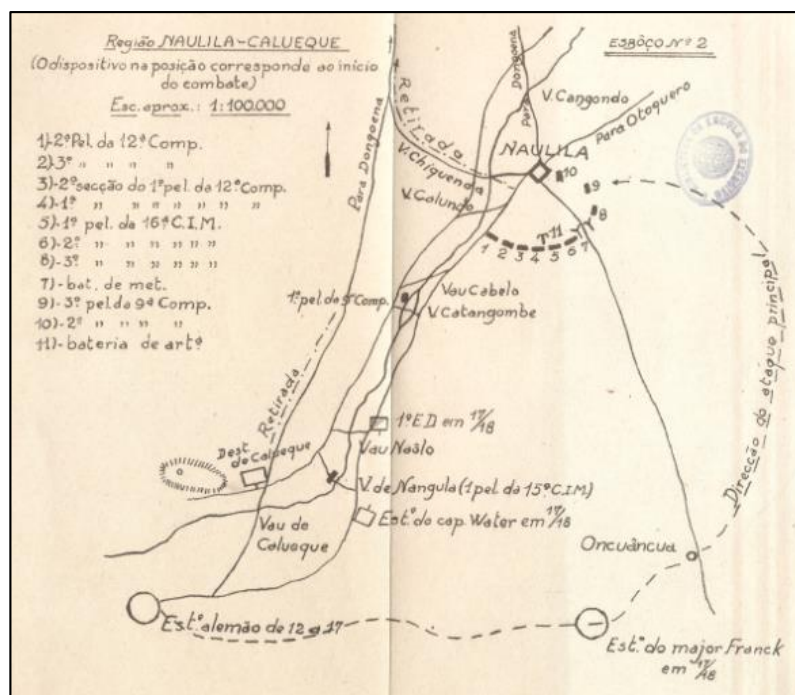 Região NAULILA-CALUEQUE
(O dispositivo na posição corresponde ao início
do combate)
Esc. aprox.: 1:100.000
1)-2º Pel. da 12ª Comp.
2)-3º " " " "
3)-2ª secção do 1º pel. da 12ª Comp.
4)-1ª " " " " " " "
5)-1º pel. da 16ª C.I.M.
6)-2º " " " " "
8)-3º " " " " "
7)-bat. de met.
9)-3º pel. da 9ª Comp.
10)-2º " " " "
11)-bateria de artª
ESBÔÇO Nº 2
Para Dongoena
Retirada
Para Dongoena
V. Cangondo
Para Otoquero
NAULILA
V. Chiguenda
V. Calundo
10
9
8
11
1 2 3 4 5 6 7
1º pel. da 9ª Comp.
Vau Cabelo
V. Catangombe
Direcção do ataque principal
Retirada
1º E.D em 17/18
Vau Naslo
Dest. de Calueque
V. de Nangula (1 pel. da 15ª C.I.M.)
Estº do cap. Water em 17/18
Vau de
Calueque
Oncuâncua
Estº alemão de 12 a 17
Estº do major Franck
em 17/18